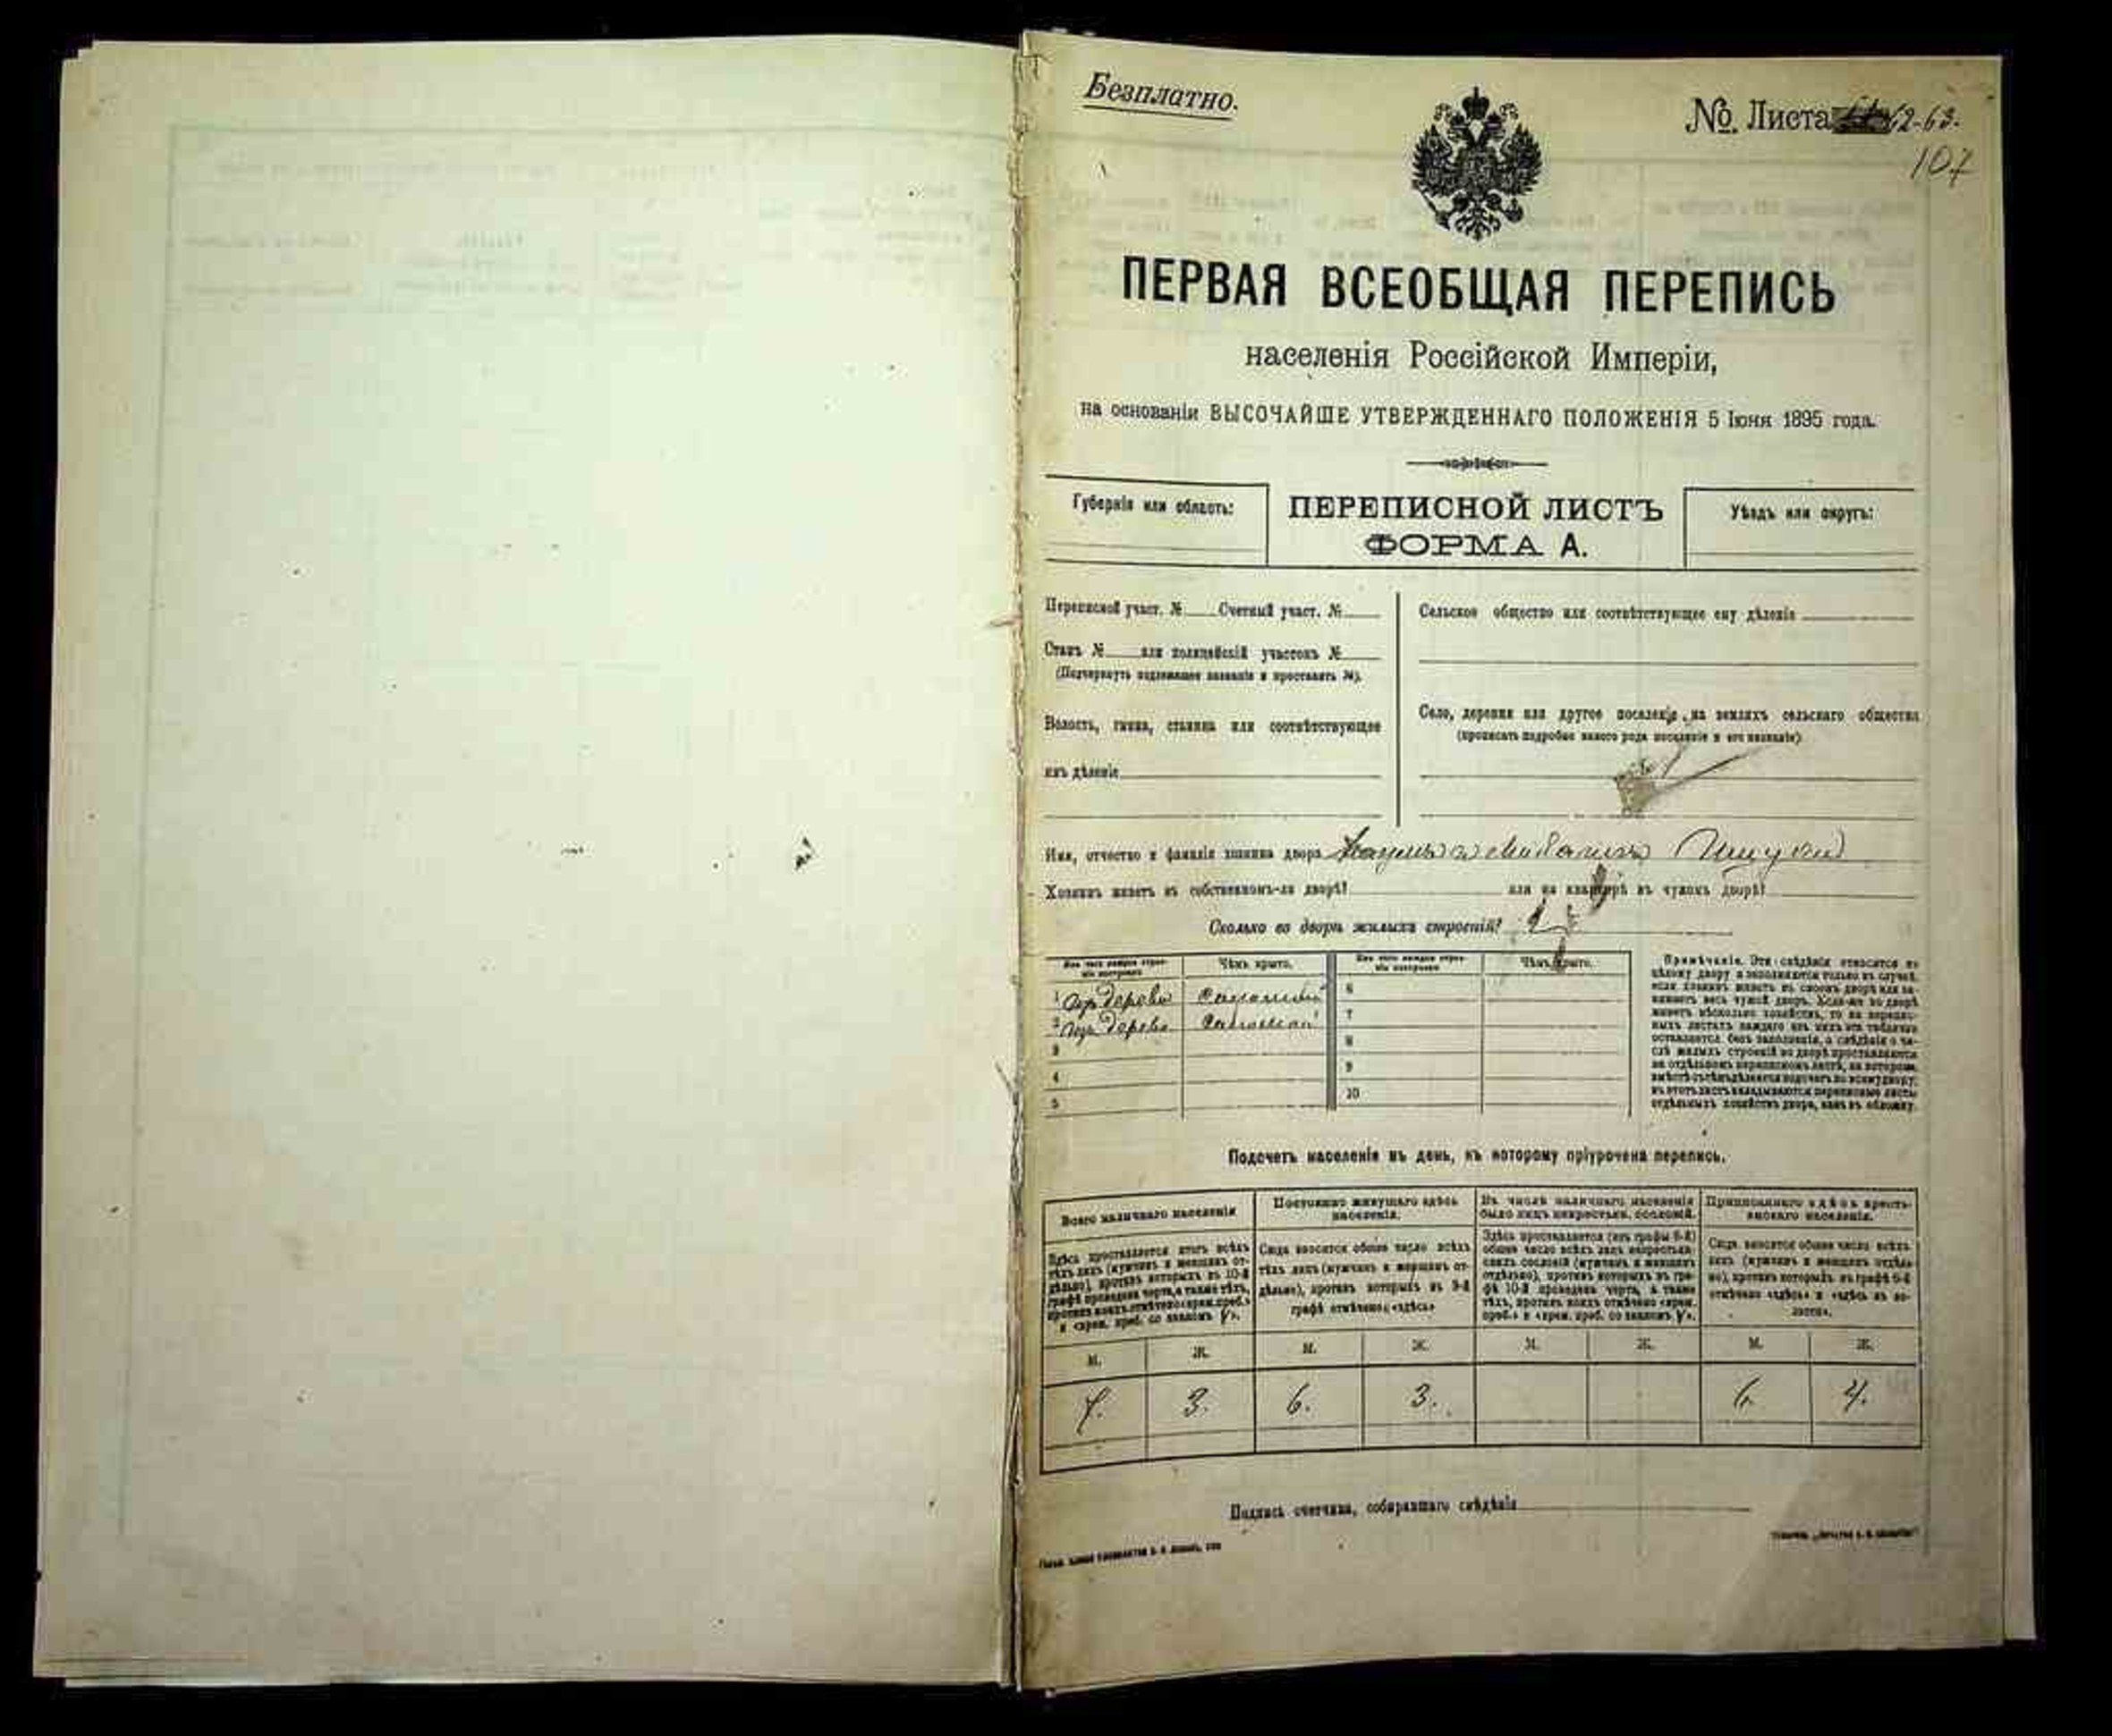 Безплатно.
№ Листа 62-63.
107
ПЕРВАЯ ВСЕОБЩАЯ ПЕРЕПИСЬ
населенія Россійской Имперіи,
на основаніи ВЫСОЧАЙШЕ УТВЕРЖДЕННАГО ПОЛОЖЕНІЯ 5 Іюня 1895 года.
Губернія или область:
ПЕРЕПИСНОЙ ЛИСТЪ
ФОРМА А.
Уѣздъ или округъ:
Переписной участ. № Счетный участ. №
Станъ № или полицейскій участокъ №
(Подчеркнуть надлежащее названіе и проставить №).
Волость, гмина, станица или соотвѣтствующее
имъ дѣленіе
Сельское общество или соотвѣтствующее ему дѣленіе
Село, деревня или другое поселеніе на земляхъ сельскаго общества
(прописать подробно какого рода поселеніе и его названіе)
Имя, отчество и фамилія хозяина двора
Хозяинъ живетъ въ собственномъ-ли дворѣ? или на квартирѣ въ чужомъ дворѣ?
Сколько во дворѣ жилыхъ строеній? 2
Изъ чего каждое строеніе построено
Чѣмъ крыто.
Изъ чего каждое строеніе построено
Чѣмъ крыто.
1 дерева соломой 6
2 дерева соломой 7
3 8
4 9
5 10
Примѣчаніе. Эти свѣдѣнія относятся къ
цѣлому двору и заполняются только въ случаѣ,
если хозяинъ живетъ въ своемъ дворѣ или за-
нимаетъ весь чужой дворъ. Если-же во дворѣ
живетъ нѣсколько хозяйствъ, то на перепис-
ныхъ листахъ каждаго изъ нихъ эта табличка
оставляется безъ заполненія, а свѣдѣнія о чи-
слѣ жилыхъ строеній во дворѣ проставляются
на отдѣльномъ переписномъ листѣ, на которомъ
вмѣстѣ съ тѣмъ дѣлается подсчетъ по всему двору;
въ этотъ листъ вкладываются переписные листы
отдѣльныхъ хозяйствъ двора, какъ въ обложку.
Подсчетъ населенія въ день, къ которому пріурочена перепись.
Всего наличнаго населенія
Здѣсь проставляется итогъ всѣхъ
тѣхъ лицъ (мужчинъ и женщинъ от-
дѣльно), противъ которыхъ въ 10-й
графѣ проведена черта, а также тѣхъ,
противъ коихъ отмѣчено «врем. преб.»
и «врем. преб. со знакомъ V».
Постоянно живущаго здѣсь
населенія.
Сюда вносится общее число всѣхъ
тѣхъ лицъ (мужчинъ и женщинъ от-
дѣльно), противъ которыхъ въ 9-й
графѣ отмѣчено «здѣсь»
Въ числѣ наличнаго населенія
было лицъ некрестьян. сословій.
Здѣсь проставляется (изъ графы 6-й)
общее число всѣхъ лицъ некрестьян-
скихъ сословій (мужчинъ и женщинъ
отдѣльно), противъ которыхъ въ гра-
фѣ 10-й проведена черта, а также
тѣхъ, противъ коихъ отмѣчено «врем.
преб.» и «врем. преб. со знакомъ V».
Приписаннаго здѣсь кресть-
янскаго населенія.
Сюда вносится общее число всѣхъ
лицъ (мужчинъ и женщинъ отдѣль-
но), противъ которыхъ въ графѣ 8-й
отмѣчено «здѣсь» и «здѣсь въ во-
лости».
М. Ж. М. Ж. М. Ж. М. Ж.
7. 3. 6. 3. 6. 4.
Подпись счетчика, собиравшаго свѣдѣнія